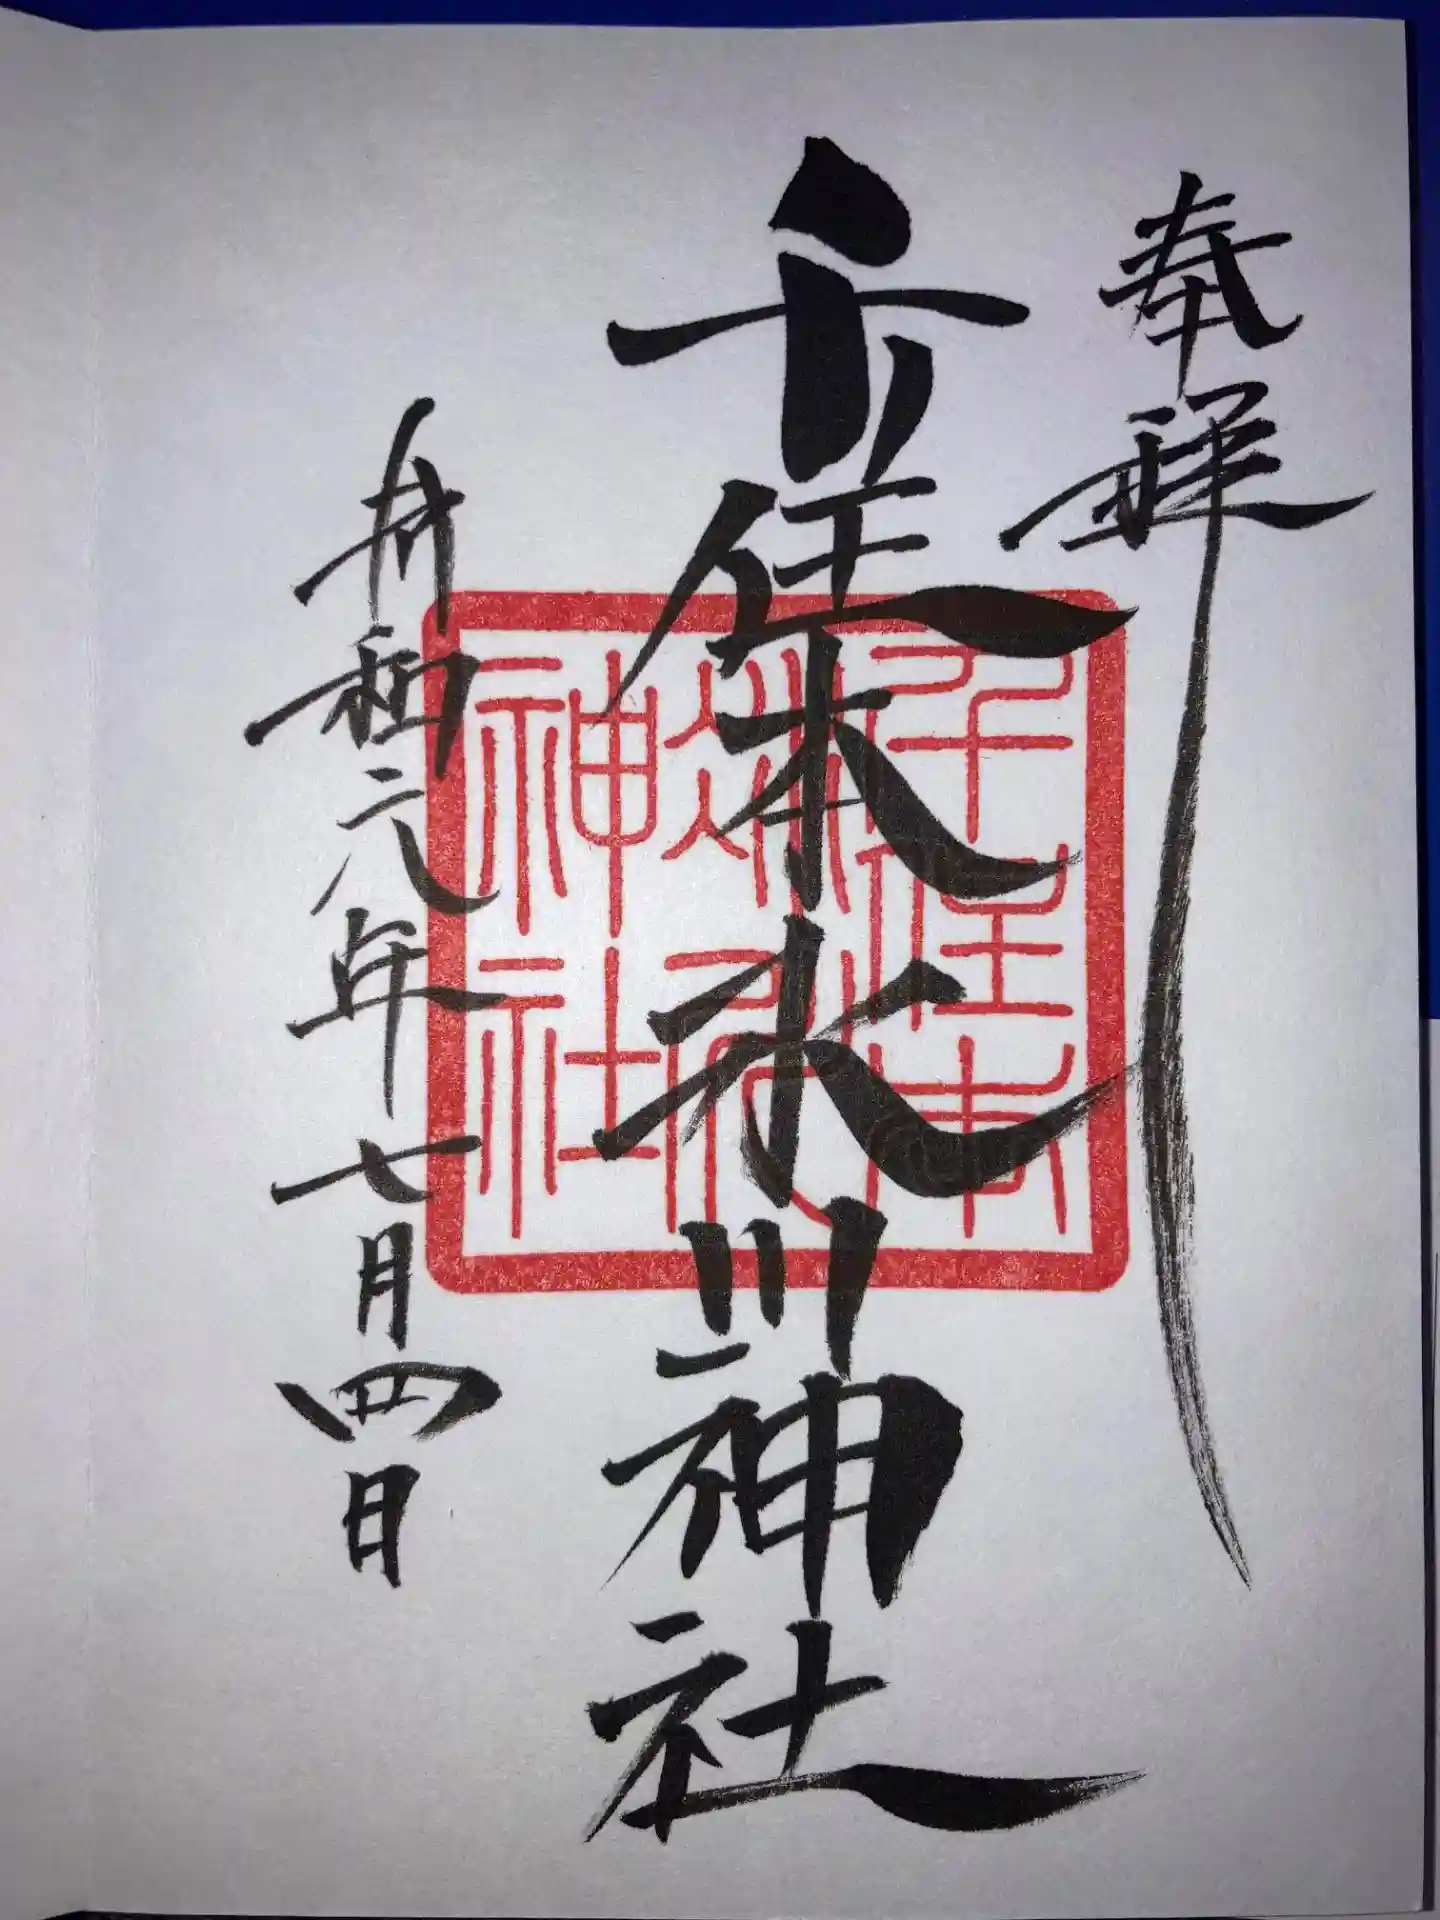 奉拝
千住本氷川神社
令和元年七月四日
千住本
氷川
神社